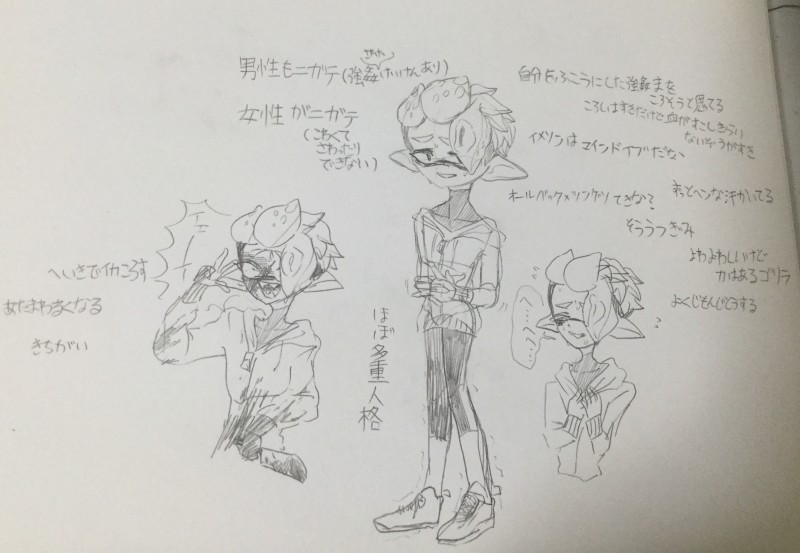 男性もニガテ(強姦けいけんあり)
女性がニガテ
(こわくて
さわったり
できない)
自分をふこうにした強姦まを
ころそうと思てる
ころしはすきだけど血がすこしきらい
ないぞうがすき
イメソンはマインドイブだな
オールバック×ツンゲリてきな?
ずっとヘンな汗かいてる
そううつぎみ
よわよわしいけど
力はあるゴリラ
よくじもんじとうする
へいきでイカころす
あたまわるくなる
きちがい
ほぼ多重人格
へへへ…